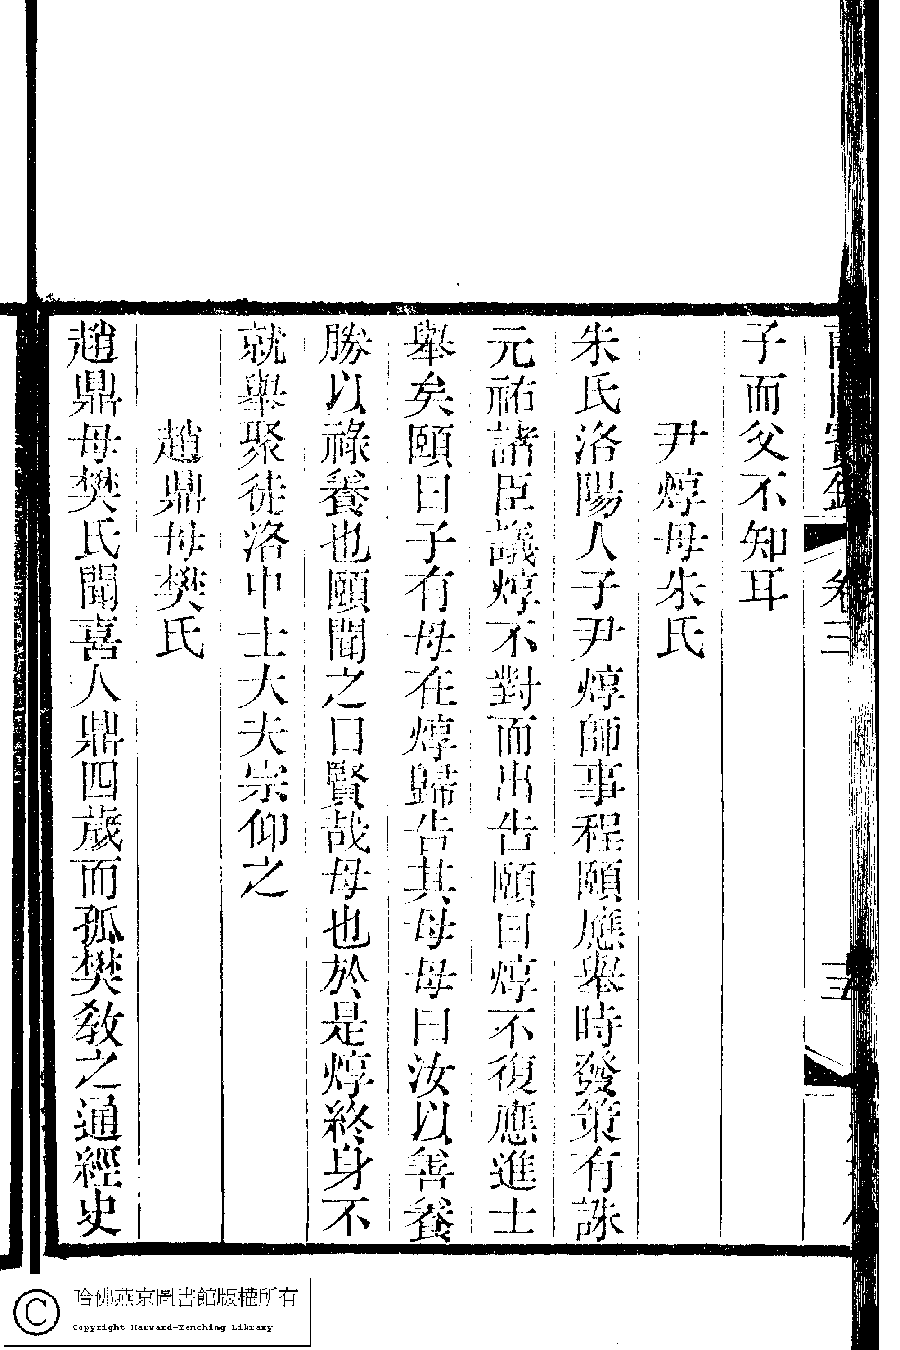 卷三
子而父不知耳
尹焞母朱氏
朱氏洛陽人子尹焞師事程頤應舉時發策有誅
元祐諸臣議焞不對而出告頤曰焞不復應進士
舉矣頤曰子有母在焞歸告其母母曰汝以善養
勝以祿養也頤聞之曰賢哉母也於是焞終身不
就舉聚徒洛中士大夫宗仰之
趙鼎母樊氏
趙鼎母樊氏聞喜人鼎四歲而孤樊教之通經史
哈佛燕京圖書館版權所有
Copyright Harvard-Yenching Library